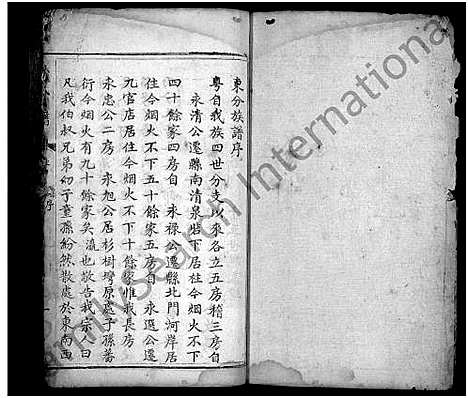 東分族譜序
粵自我族四世分支以來各立五房稽三房自
永清公遷縣南清泉岩下居住今烟火不下
四十餘家四房自 永祿公遷縣北門河岸居
住今烟火不下五十餘家五房自 永遐公遷
九官店居住今烟火不下十餘家惟我長房
永忠公二房 永旭公居杉樹塆原處子孫蕃
衍今烟火有九十餘家矣瀛也敬告我宗人曰
凡我伯叔兄弟幼子童孫紛然散處於東南西
序
FamilySearch International